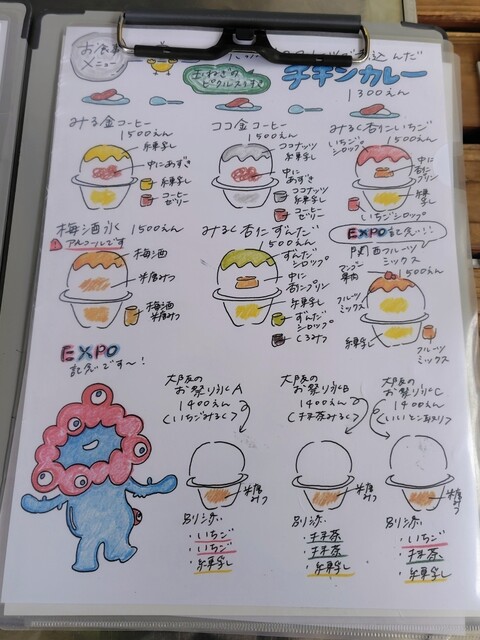 お食事
メニュー
込んだ
おねぎの
ピクルスつき
チキンカレー
1300えん
みる金コーヒー
1500えん
糸東乳し
中にあずき
糸東乳し
コーヒー
ゼリー
ココ金コーヒー
1500えん
ココナッツ
糸東乳し
中に
あずき
ココナッツ
糸東乳し
コーヒー
ゼリー
みるく杏仁いちご
いちご
シロップ
1500えん
中に
杏仁
プリン
糸東乳し
いちごシロップ
梅酒氷 1500えん
アルコールです
梅酒
米唐みつ
梅酒
米唐みつ
みるく杏仁ずんだ
1500えん
ずんだ
シロップ
中に
杏仁プリン
糸東乳し
ずんだ
シロップ
くろみつ
EXPO記念!!
関西フルーツ
ミックス
1500えん
マンゴー
果肉
フルーツ
ミックス
糸東乳し
フルーツ
ミックス
EXPO
記念です〜!
大阪の
お祭り氷A
1400えん
(いちごみるく)
米唐
みつ
別添
・いちご
・いちご
・糸東乳し
大阪の
お祭り氷B
1400えん
(抹茶みるく)
米唐みつ
別添
・抹茶
・抹茶
・糸東乳し
大阪の
お祭り氷C
1400えん
(いいとこ取り)
米唐
みつ
別添
・いちご
・抹茶
・糸東乳し